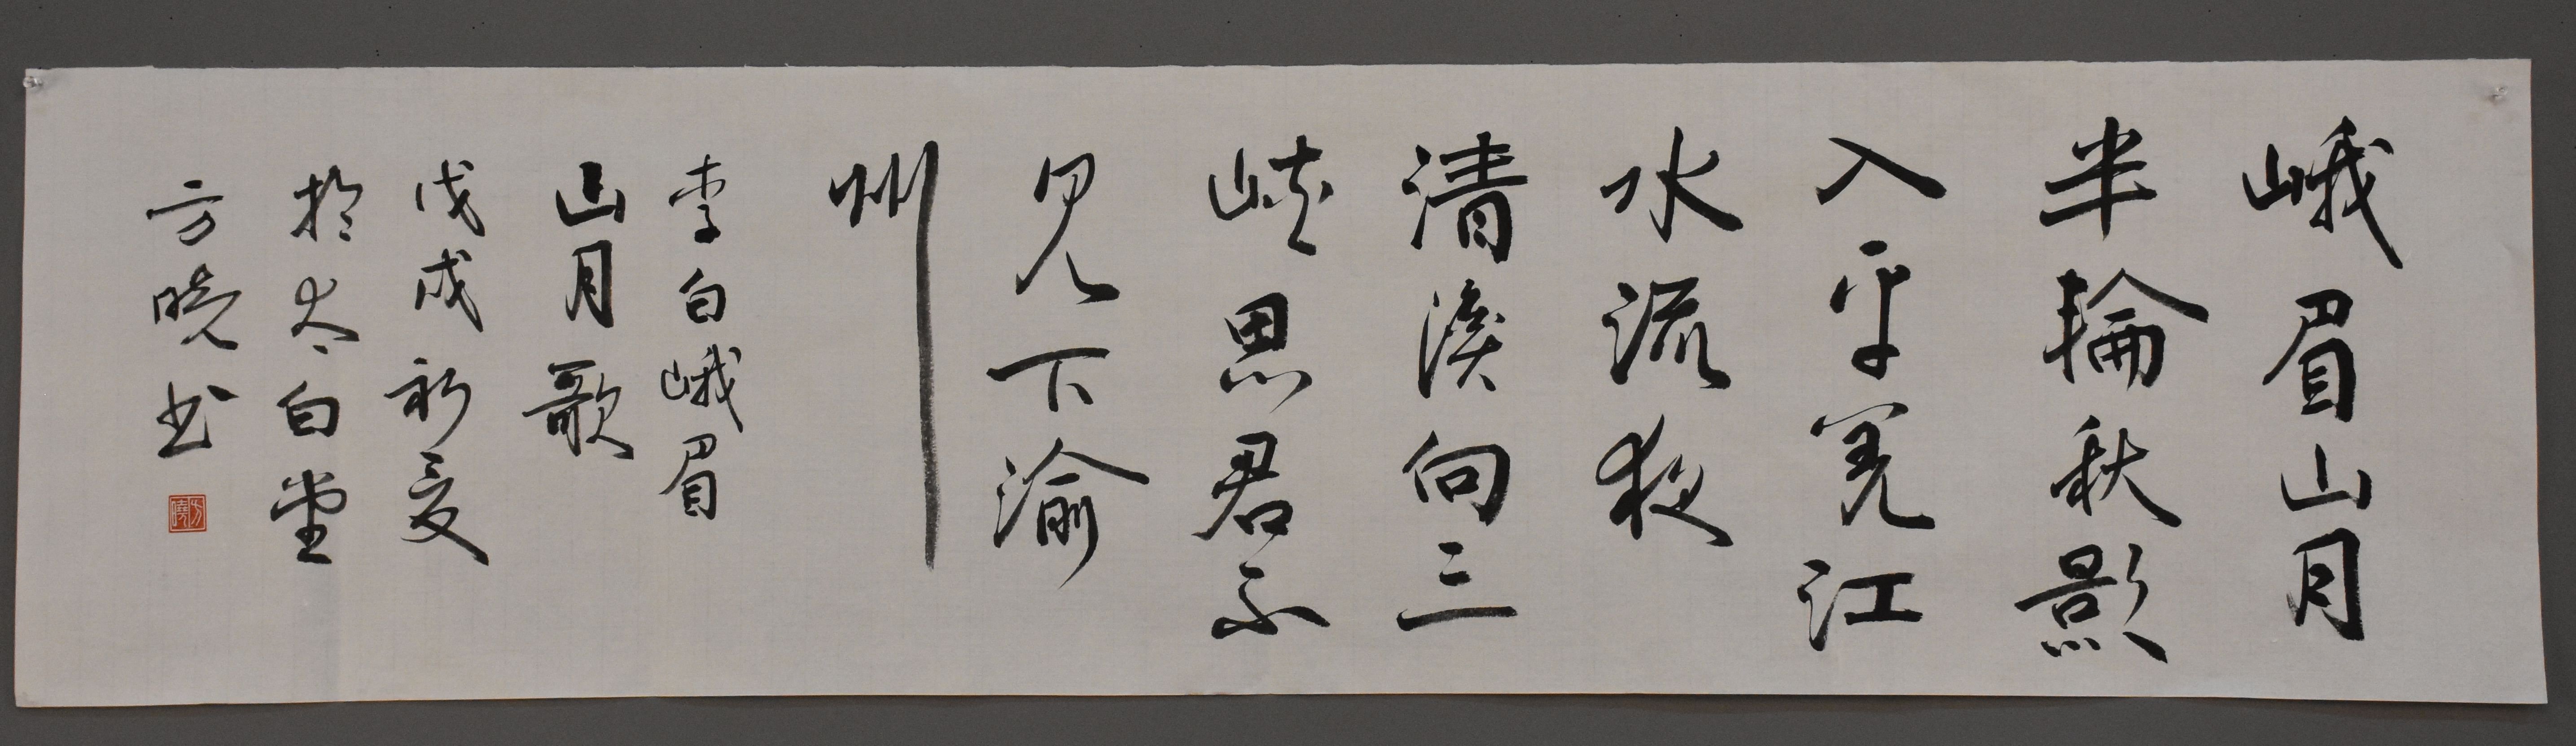 峨眉山月
半輪秋影
入平羌江
水流夜
清溪向三
峡思君不
見下渝
州
李白峨眉
山月歌
戊戌初夏
於太白堂
方晓书
方曉